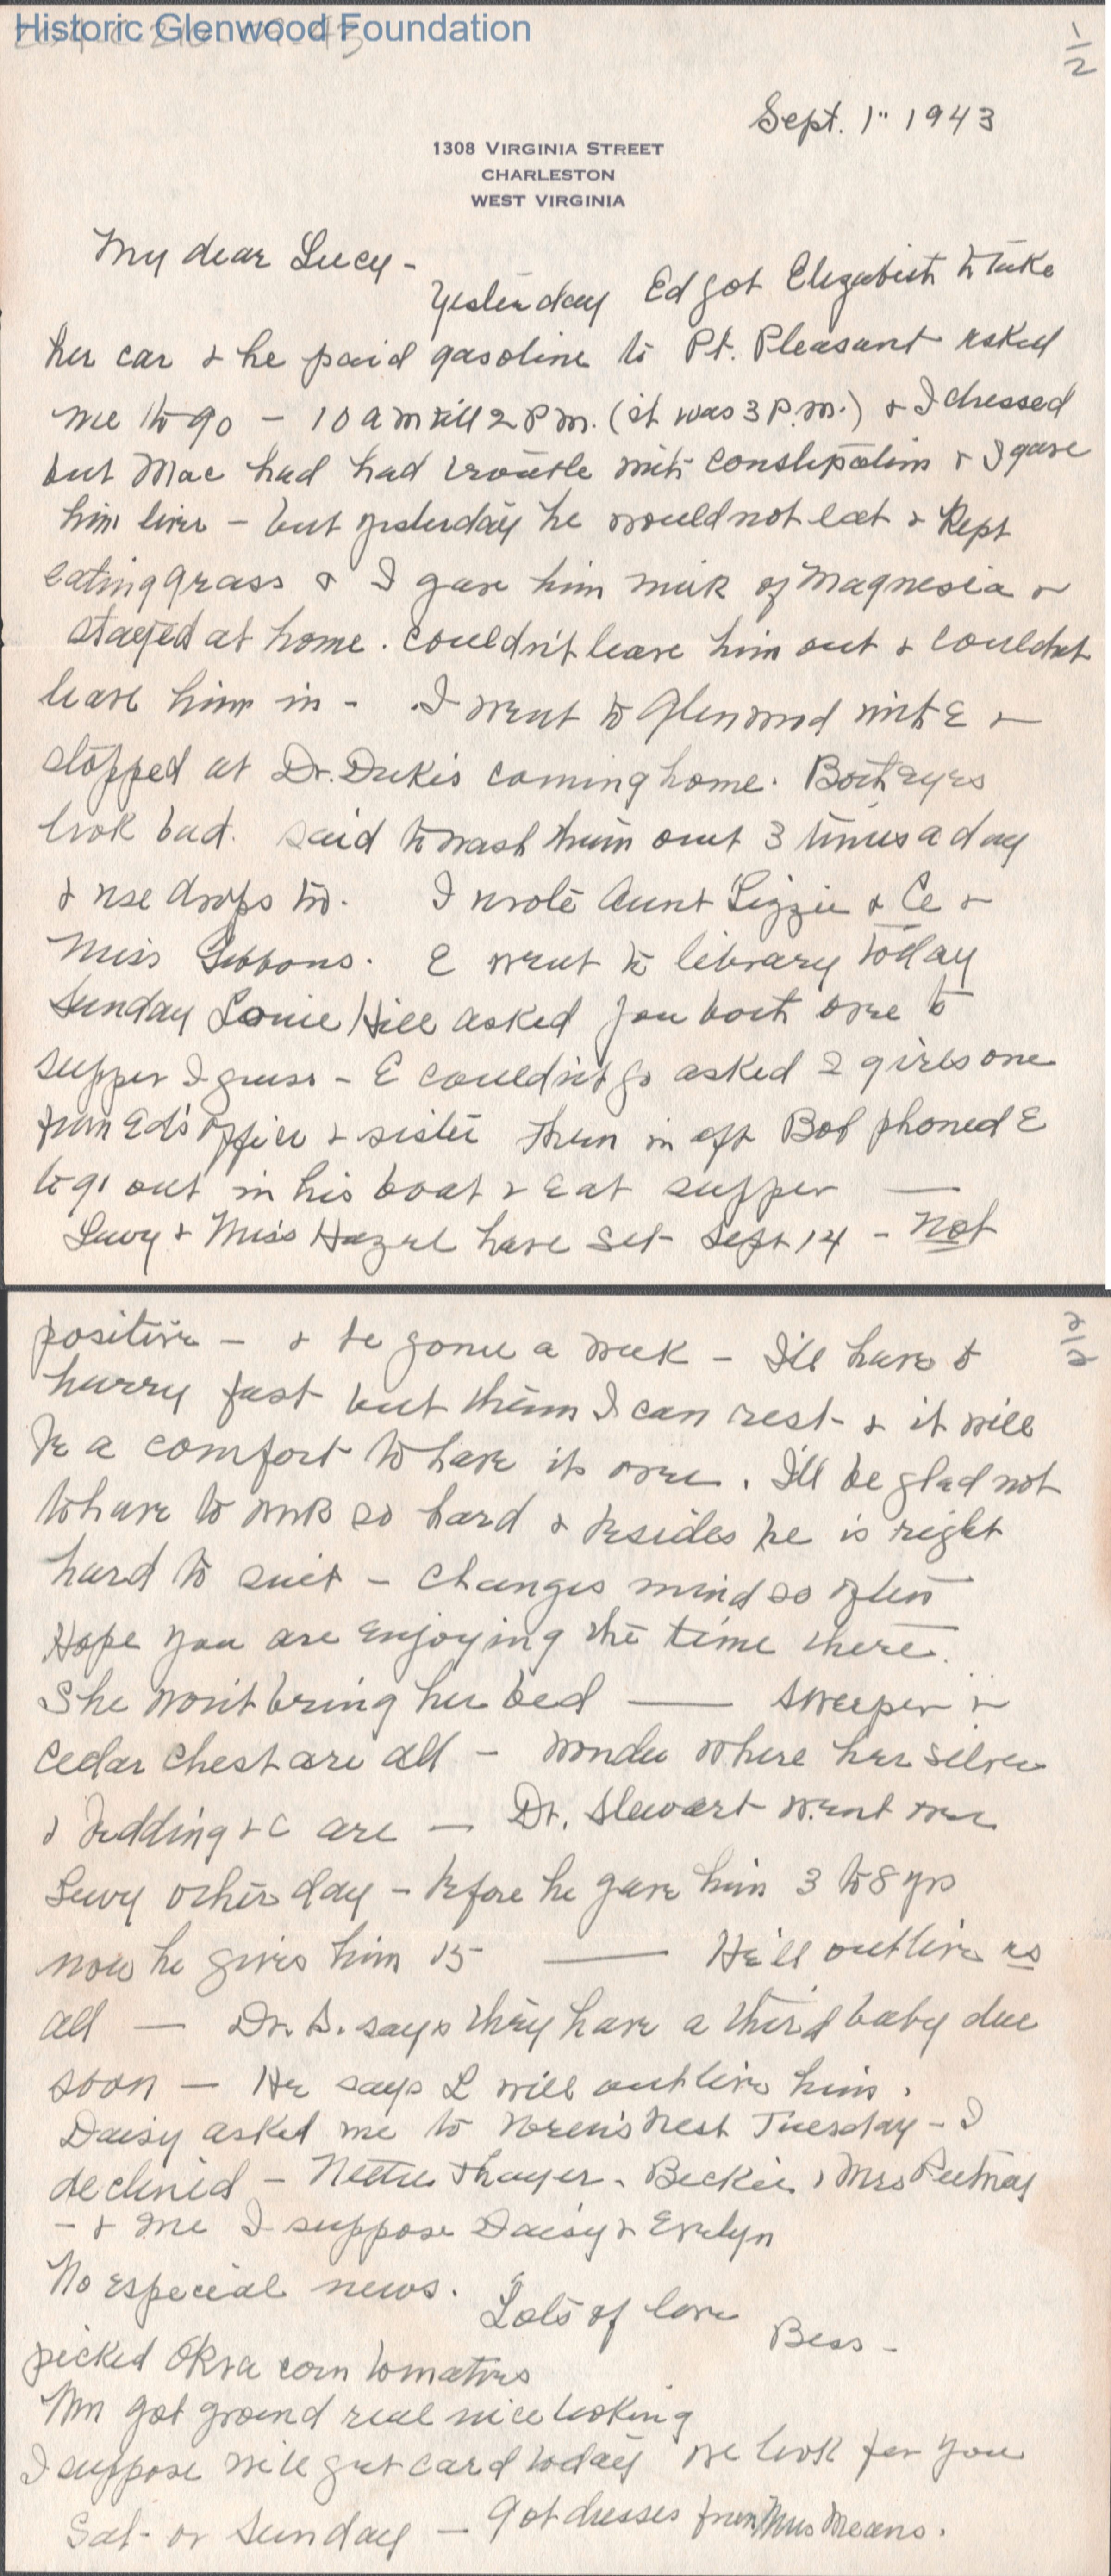 Historic Glenwood Foundation
1/2
Sept. 1" 1943
1308 VIRGINIA STREET
CHARLESTON
WEST VIRGINIA
My dear Lucy -
Yesterday Ed got Elizabeth to take
her car & he paid gasoline to Pt. Pleasant asked
me to go - 10 a m till 2 P m. (it was 3 P.m.) & I dressed
but Mac had had trouble with constipation & I gave
him liver - but yesterday he would not eat & kept
eating grass & I gave him milk of Magnesia &
stayed at home. Couldn't leave him out & couldnt
leave him in - I went to Glenwood with E &
stopped at Dr. Duke's coming home. Both eyes
look bad. said to wash them out 3 times a day
& use drops too. I wrote Aunt Lizzie & Ce &
Miss Gibbons. E went to library today
Sunday Louie Hill asked you both over to
supper I guess - E couldn't go asked 2 girls one
from Ed's office & sister then in aft Bob phoned E
to go out in his boat & eat supper —
Levy & Miss Hazel have set Sept 14 - Not
positive - & be gone a week - I'll have to
hurry fast but then I can rest - & it will
be a comfort to have it over. I'll be glad not
to have to work so hard & besides he is right
hard to suit - changes mind so often
Hope you are enjoying the time there.
She won't bring her bed — sweeper &
cedar chest are all - wonder where her silver
& bedding &c are - Dr. Stewart went over
Levy other day - before he gave him 3 to 8 yrs
now he gives him 15 — He'll outlive us
all — Dr. S. says they have a third baby due
soon - He says L will outlive him.
Daisy asked me to Wren's Nest Tuesday - I
declined - Nettie Thayer - Beckie, Mrs Putney
- & me I suppose Daisy & Evelyn
No especial news. Lots of love
Bess -
picked Okra corn tomatoes
Wm got ground real nice looking
I suppose we'll get card today we look for you
Sat - or Sunday - Got dresses from Mrs Means.
2/2